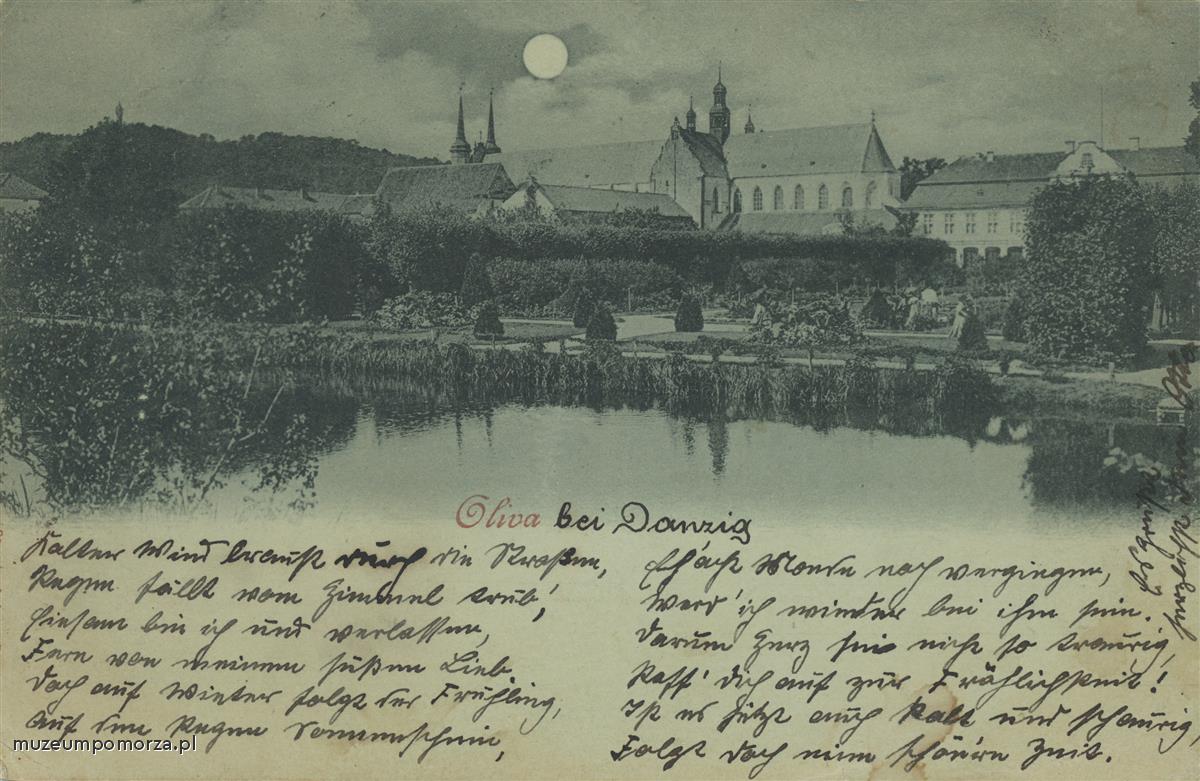 Oliva bei Danzig
Kalter Wind braust durch die Straßen,
Regen fällt vom Himmel trüb',
Einsam bin ich und verlassen,
Fern von meinem süßen Lieb.
Doch auf Winter folgt der Frühling,
Auf den Regen Sonnenschein,
Eh' acht Monde noch vergingen,
Werd' ich wieder bei ihm sein.
Darum Herz sei nicht so traurig,
Raff' dich auf zur Fröhlichkeit!
Ist es jetzt auch kalt und schaurig,
Folgt doch eine schön're Zeit.
Es grüßt
herzlichst
muzeumpomorza.pl